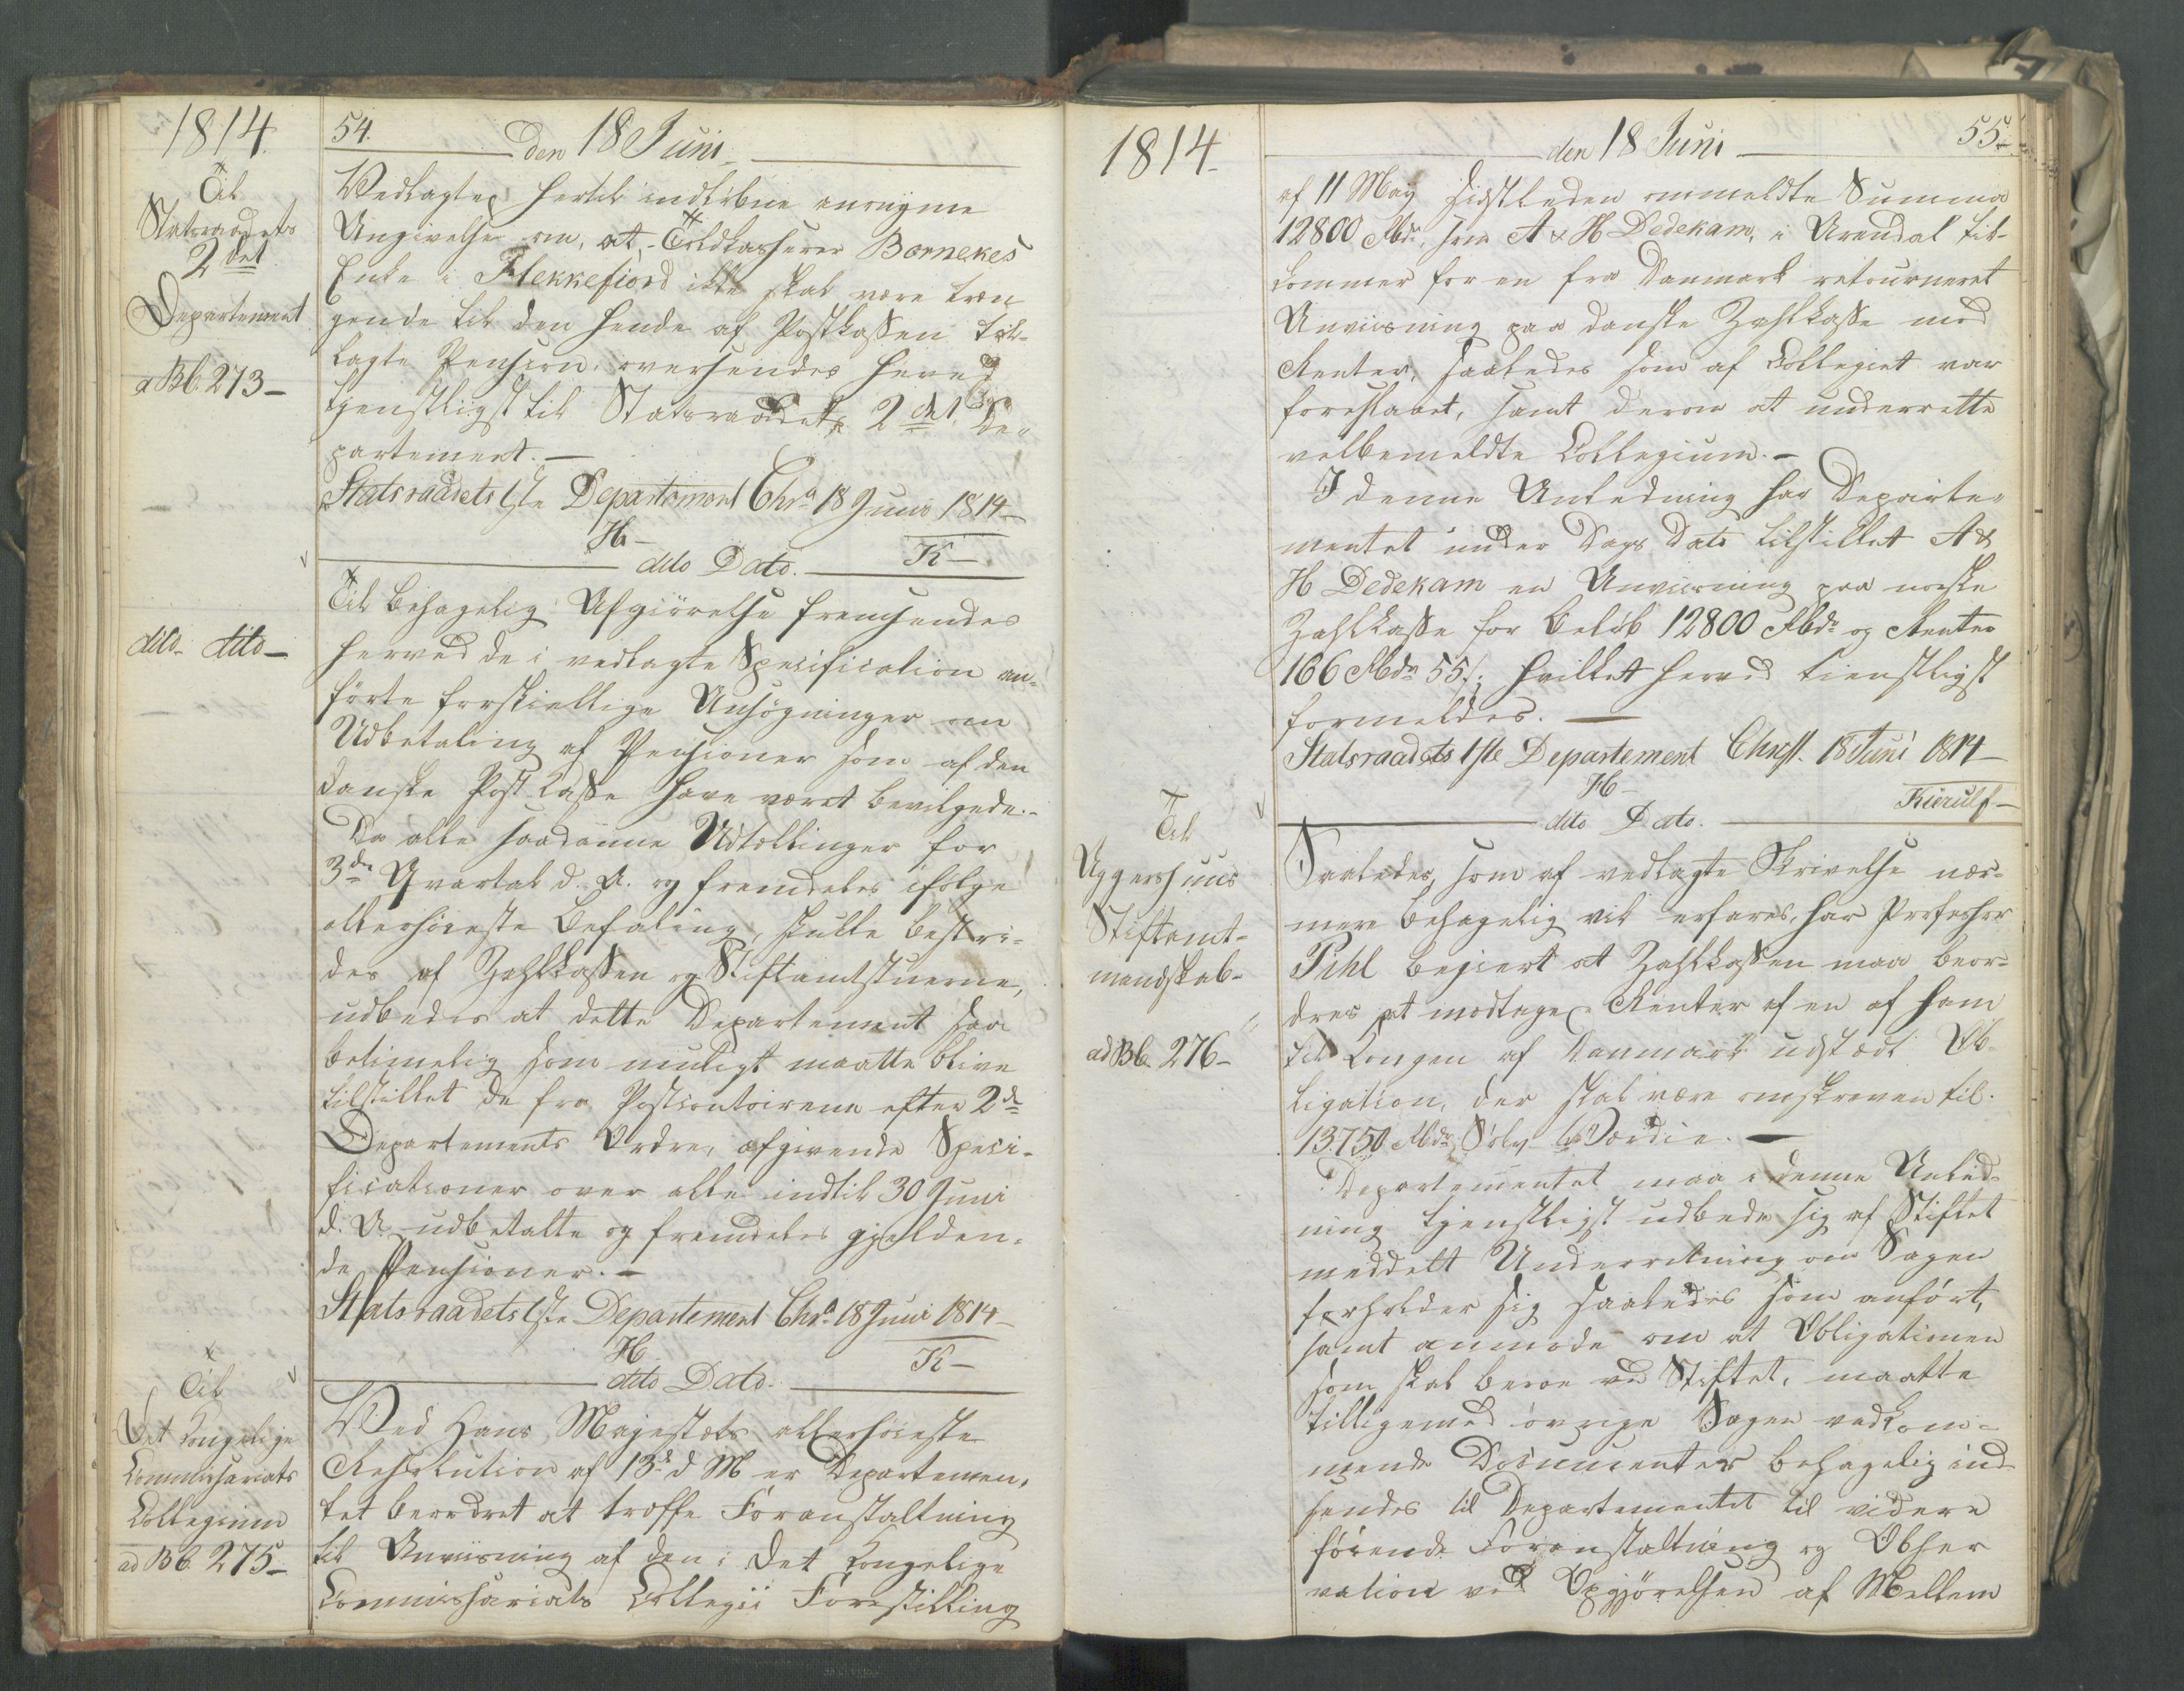 1814.
54.
den 18 Juni
Til
Statsraadets
2det
Departement
a Bb. 273 -
Vedlagte, hertil indløbne anonyme
Angivelse om, at Toldkasserer Bornekes
Enke i Flekkefiord ikke skal være træn
gende til den hende af Postkassen til-
lagte Pension, oversendes herved
tjenstligst til Statsraadets 2det De-
partement. -
Statsraadets 1ste Departement Chra 18 Juni 1814 -
H -
K -
dito Dato.
dito - dito -
Til behagelig Afgiörelse fremsendes
herved de i vedlagte Specification an-
förte forskiellige Ansögninger om
Udbetaling af Pensioner som af den
danske Post Casse have været bevilgede. -
Da alle saadanne Udtællinger for
3de Qvartal d. A. og fremdeles ifölge
allerhöieste Befaling, skulle bestri-
des af Zahlkassen og Stiftamtstuerne,
udbedes at dette Departement saa
betimelig som muligt maatte blive
tilstillet de fra Postcontoirene efter 2de
Departements Ordre, afgivende Speci-
ficationer over alle indtil 30 Juni
d. A. udbetalte og fremdeles gjelden-
de Pensioner. -
Statsraadets 1ste Departement Chra 18 Juni 1814 -
H
K -
dito Dato.
Til
Det kongelige
Commissariats
Collegium
ad Bb. 275 -
Ved Hans Majestæts allerhöieste
Resolution af 13de d M er Departemen-
tet beordret at træffe Foranstaltning
til Anviisning af den i det kongelige
Commissariats Collegii Forestilling
1814 -
den 18 Juni
55.
af 11 May sidstleden ommeldte Summa
12800 Rbdr, som A & H Dedekam, i Arendal til-
kommer for en fra Danmark retourneret
Anviisning paa danske Zahlkasse med
Renter, saaledes som af Collegiet var
foreslaaet, samt derom at underrette
velbemeldte Collegium. -
I denne Anledning har Departe-
mentet under Dags Dato tilstillet A &
H Dedekam en Anviisning paa norske
Zahlkasse for Beløb 12800 Rbdr og Renter
166 Rbdr 55 s; hvilket herved tienstligst
formeldes. -
Statsraadets 1ste Departement Christ. 18 Juni 1814 -
H -
Kierulf -
dito Dato.
Til
Aggershuus
Stiftamt-
mandskab -
ad Bb. 276 -
Saaledes, som af vedlagte Skrivelse nær-
mere behagelig vil erfares, har Professor
Pihl begiert at Zahlkassen maa beor-
dres at modtage Renter af en af ham
til Kongen af Danmark udstædt Ob-
ligation, der skal være omskreven til
13750 Rbdr Sölv Værdie. -
Departementet maa i denne Anled-
ning tjenstligst udbede sig af Stiftet
meddelt Underretning om Sagen
forholder sig saaledes som anfört,
samt anmode om at Obligationen
som skal beroe ved Stiftet, maatte
tilligemed övrige Sagen vedkom-
mende Documenter behagelig ind-
sendes til Departementet til videre
föiende Foranstaltning og Obser
vation ved Opgjörelsen af Mellem